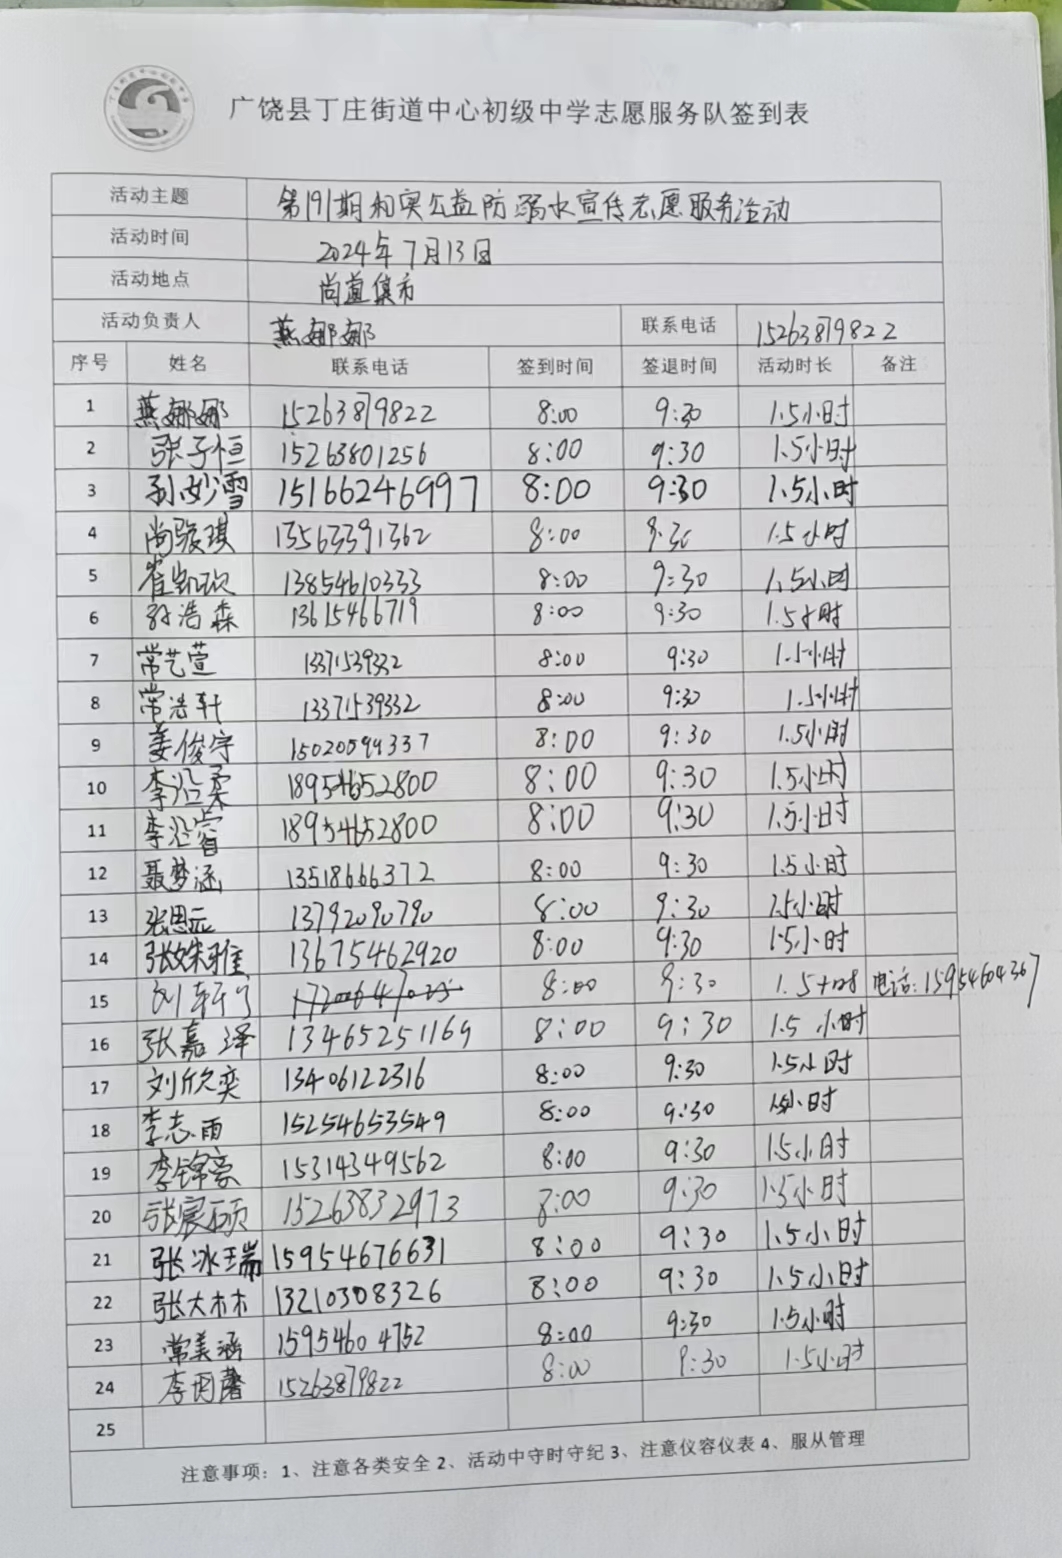 广饶县丁庄街道中心初级中学志愿服务队签到表
活动主题 第191期和奕公益防溺水宣传志愿服务活动
活动时间 2024年7月13日
活动地点 尚道集市
活动负责人 燕娜娜 联系电话 15263879822
序号 姓名 联系电话 签到时间 签退时间 活动时长 备注
1 燕娜娜 15263879822 8:00 9:30 1.5小时
2 张子恒 15263801256 8:00 9:30 1.5小时
3 孙妙雪 15166246997 8:00 9:30 1.5小时
4 尚骏琪 13563391362 8:00 9:30 1.5小时
5 崔凯欣 13854610333 8:00 9:30 1.5小时
6 孙浩森 13615466719 8:00 9:30 1.5小时
7 常艺萱 13371539332 8:00 9:30 1.5小时
8 常浩轩 13371539332 8:00 9:30 1.5小时
9 姜俊宇 15020599337 8:00 9:30 1.5小时
10 李沿柔 18954652800 8:00 9:30 1.5小时
11 李沿睿 18954652800 8:00 9:30 1.5小时
12 聂梦涵 13518666372 8:00 9:30 1.5小时
13 张思远 13792090790 8:00 9:30 1.5小时
14 张姝雅 13675462920 8:00 9:30 1.5小时
15 刘轩宁 8:00 9:30 1.5小时 电话:15954604367
16 张嘉泽 13465251169 8:00 9:30 1.5小时
17 刘欣奕 13406122316 8:00 9:30 1.5小时
18 李志雨 15254653549 8:00 9:30 1.5小时
19 李锦豪 15314349562 8:00 9:30 1.5小时
20 张宸硕 15263832973 8:00 9:30 1.5小时
21 张冰瑞 15954676631 8:00 9:30 1.5小时
22 张大林 13210308326 8:00 9:30 1.5小时
23 常美涵 15954604752 8:00 9:30 1.5小时
24 李玥馨 15263879822 8:00 9:30 1.5小时
25
注意事项：1、注意各类安全 2、活动中守时守纪 3、注意仪容仪表 4、服从管理